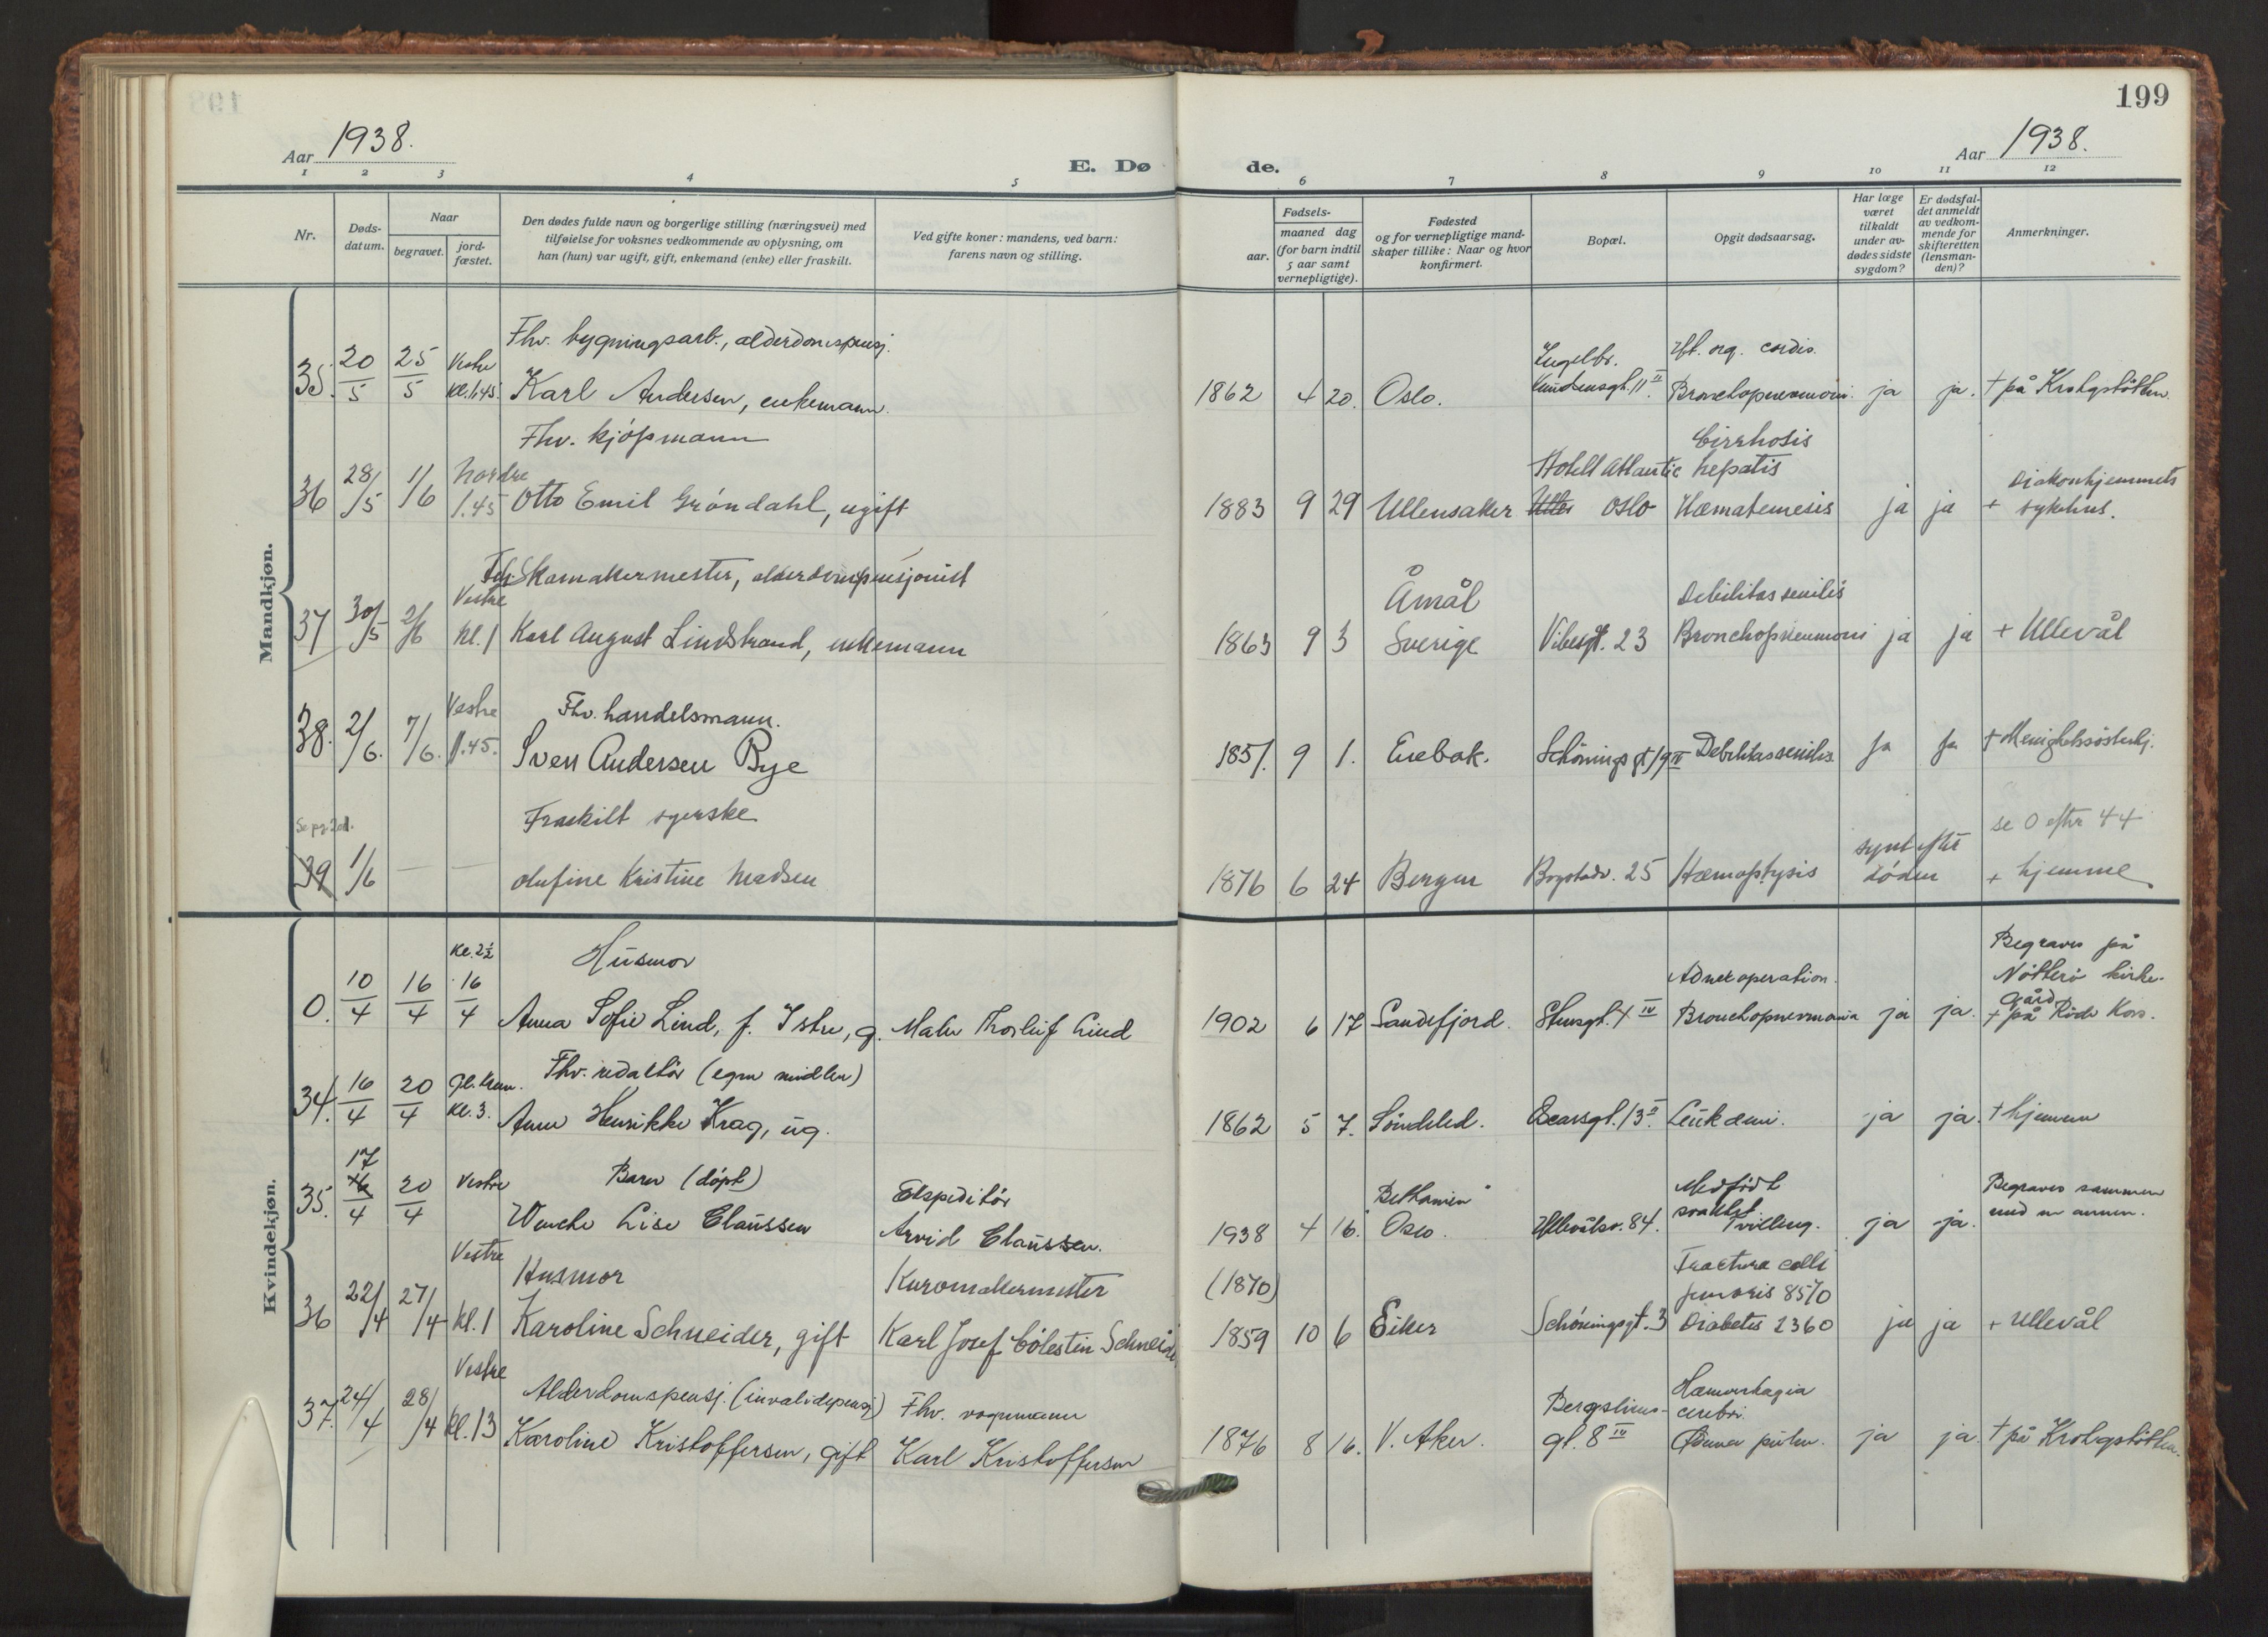 199
Aar 1938.
E. Dø
de.
Aar 1938.
1 2 3 4 5 6 7 8 9 10 11 12
Nr.
Døds-
datum.
Naar
begravet.
jord-
fæstet.
Den dødes fulde navn og borgerlige stilling (næringsvei) med
tilføielse for voksnes vedkommende av oplysning, om
han (hun) var ugift, gift, enkemand (enke) eller fraskilt.
Ved gifte koner: mandens, ved barn:
farens navn og stilling.
Fødsels-
aar.
maaned dag
(for barn indtil
5 aar samt
vernepligtige).
Fødested
og for vernepligtige mand-
skaper tillike: Naar og hvor
konfirmert.
Bopæl.
Opgit dødsaarsag.
Har læge
været
tilkaldt
under av-
dødes sidste
sygdom?
Er dødsfal-
det anmeldt
av vedkom-
mende for
skifteretten
(lensman-
den)?
Anmerkninger.
Mandkjøn.
Fhv. bygningsarb., alderdomspensj.
35. 20/5 25/5 Vestre kl. 1.45. Karl Andersen, enkemann.
1862 4 20. Oslo.
Knudsensgt. 11 II.
Hft. org. cordis.
Bronchopneumoni. ja ja. † på Krohgstøtten.
Fhv. kjøpmann
36 28/5 1/6 Nordre 1.45 Otto Emil Grøndahl, ugift
1883 9 29 Ullensaker
Hotell Atlantic
Oslo
Cirrhosis
hepatis
Hæmatemesis ja ja
Diakonhjemmets
+ sykehus.
Skomakermester, alderdomspensjonist
37 30/5 2/6 Vestre kl. 1 Karl August Lindstrand, enkemann
1863 9 3
Åmål
Sverige
Vibesgt. 23
Debilitas senilis
Bronchopneumoni ja ja + Ullevål
Fhv. handelsmann.
38. 2/6. 7/6. Vestre 1.45. Sven Andersen Bye
1851. 9 1. Enebak. Schønings gt 19 IV Debilitas senilis. Ja Ja + Menighetssøsterhj.
Se pg. 201.
Fraskilt syerske
39 1/6 — — Olufine Kristine Madsen
1876 6 24 Bergen Bogstadv. 25 Hæmoptysis
synt efter
døden
se 0 efter 44
+ hjemme
Kvindekjøn.
Husmor
0. 10/4 16/4 kl. 2½ 16/4 Anna Sofie Lind, f. Istre, g. Maler Thorleif Lind
1902 6 17 Sandefjord. Stensgt. 4 IV
Adnexoperation.
Bronchopneumonia ja ja.
Begraves på
Nøtterø kirke-
gård
+ på Røde Kors.
Fhv. redaktør (egne midler)
34. 16/4 20/4 Gl. krem. kl. 3. Anna Henrikke Krag, ug.
1862 5 7. Søndeled. Oscarsgt. 13 II. Leukæmi. ja ja. + hjemme
Barn (døpt)
35. 17 16/4 20/4 Vestre Wenche Lise Claussen
Ekspeditør
Arvid Claussen.
1938 4 16.
Bethanien
Oslo.
Ullevålsv. 84.
Medfødt
svakhet
Tvilling. ja ja.
Begraves sammen
med en annen.
Husmor
36 22/4 27/4 Vestre kl. 1 Karoline Schneider, gift
Kurvmakermester
Karl Josef Cölestin Schneider
(1870)
1859 10 6 Eiker Schøningsgt. 3
Fractura colli
femoris 8570
Diabetes 2360 ja ja + Ullevål
Alderdomspensj. (invalidepensj)
37. 24/4 28/4 Vestre kl. 13 Karoline Kristoffersen, gift
Fhv. vognmann
Karl Kristoffersen
1876 8 16. V. Aker.
Bergsliens-
gt. 8 IV
Hæmorrhagia
cerebri.
Ødema pulm. ja ja. † på Krohgstøtten.